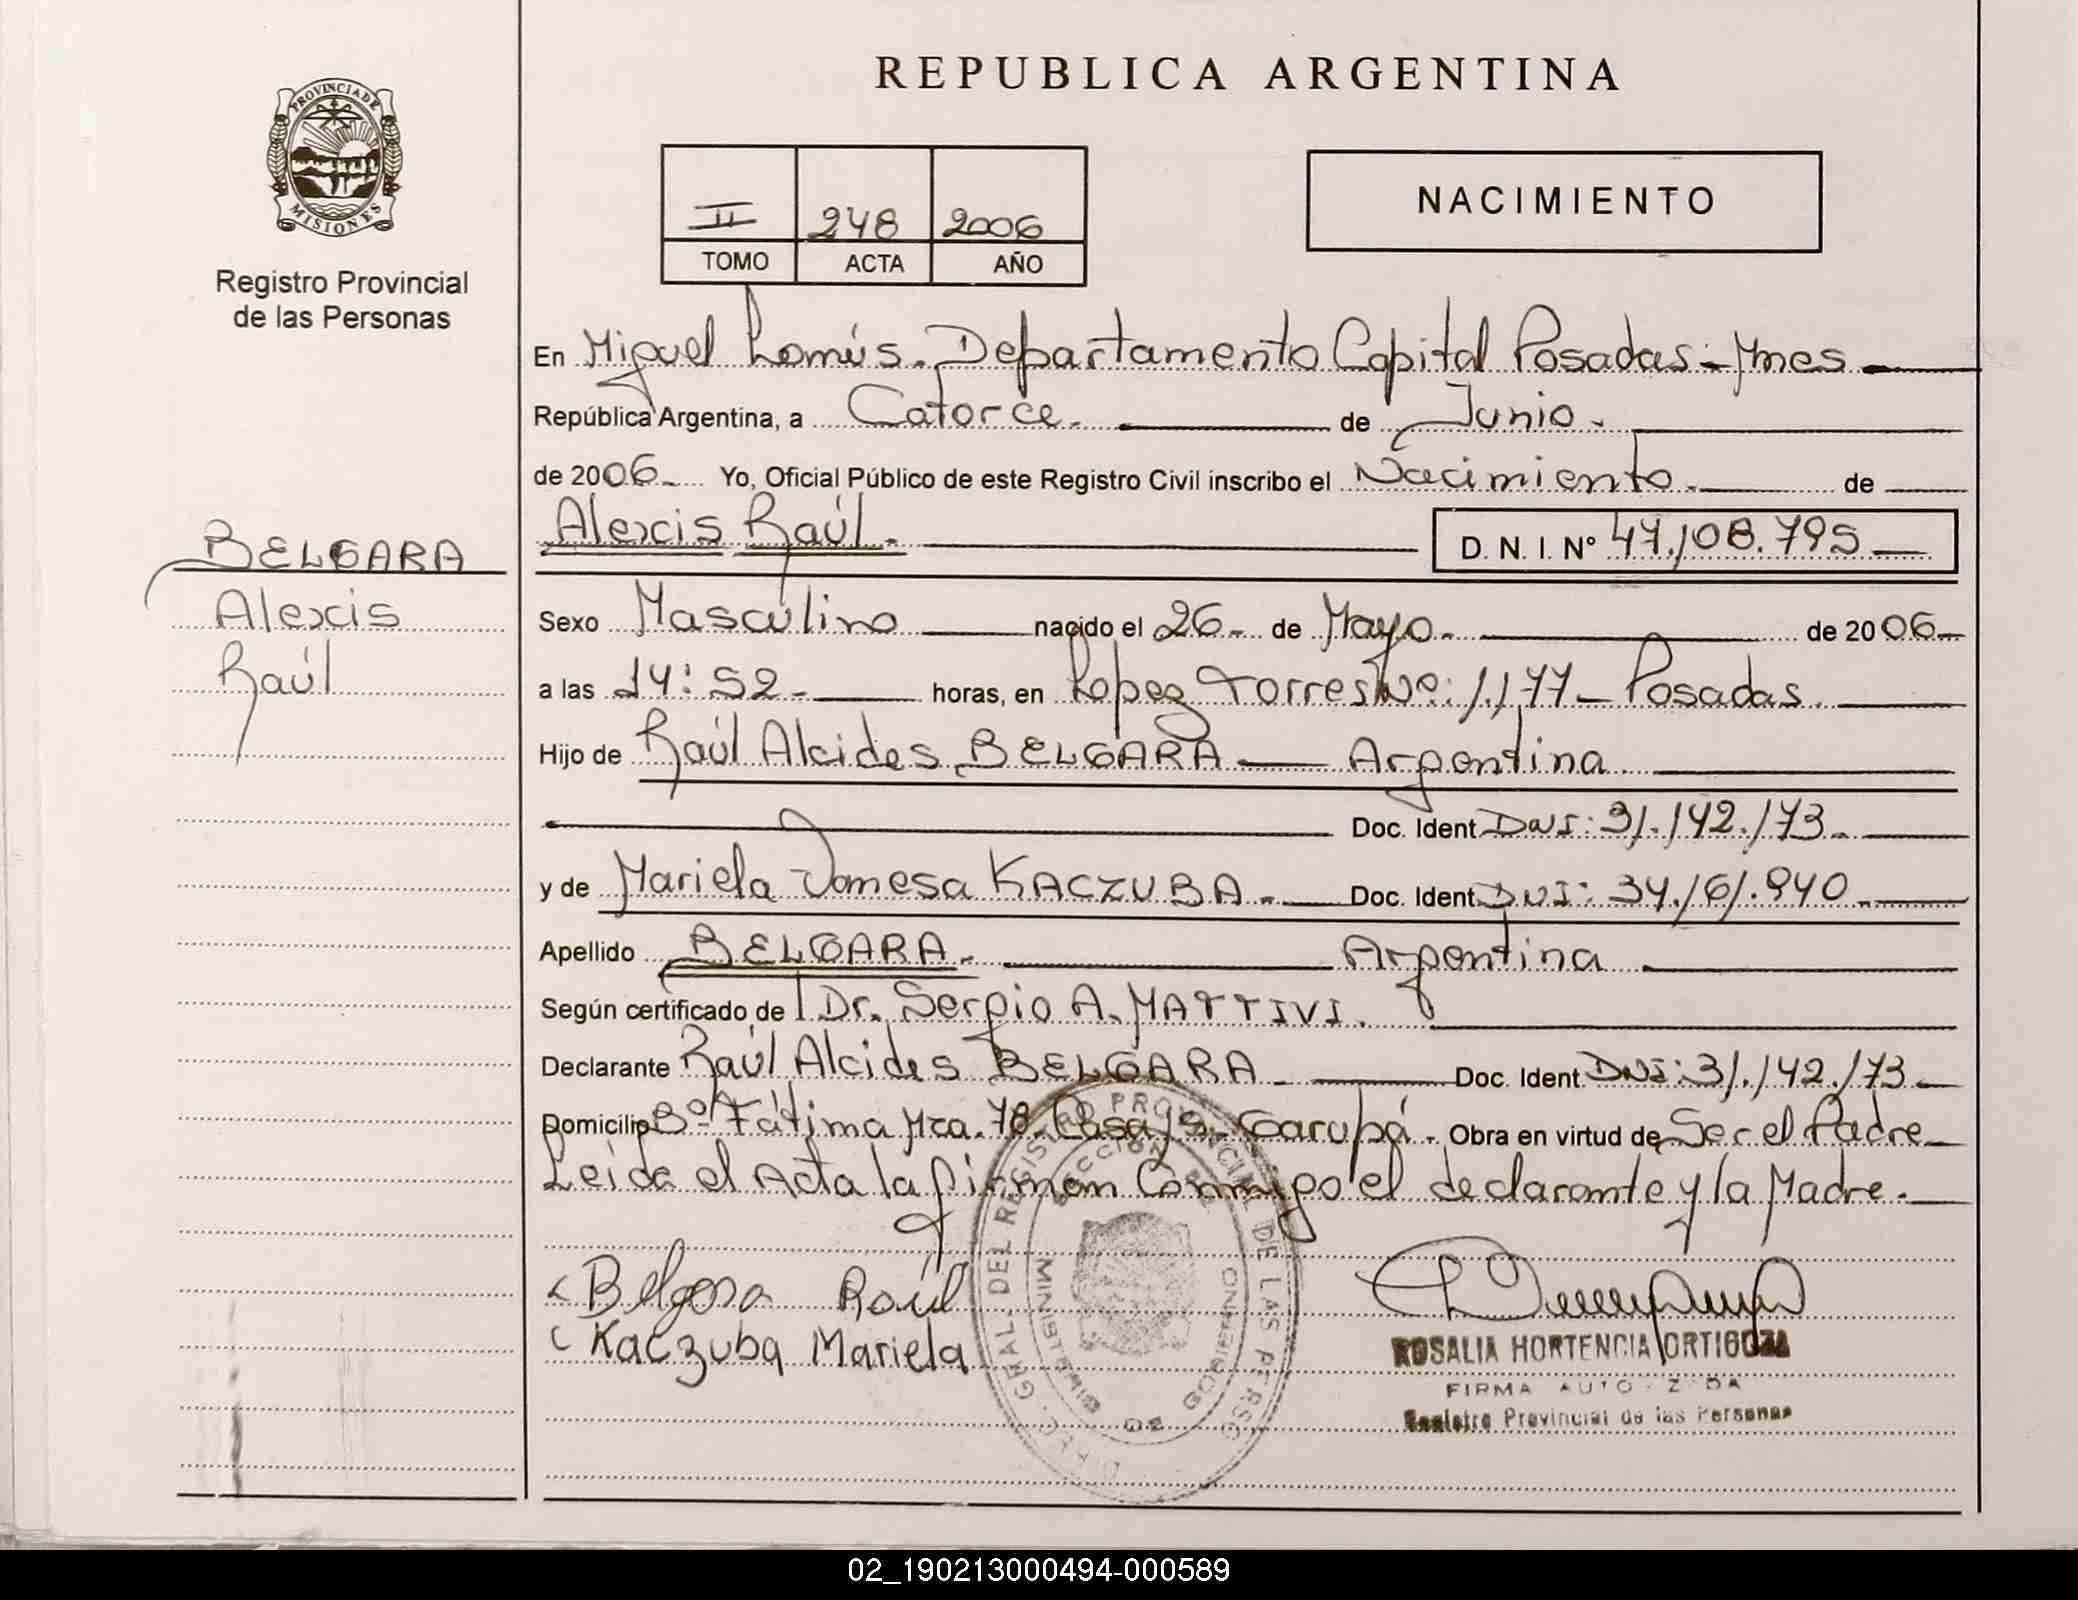 REPUBLICA ARGENTINA
PROVINCIA DE
MISIONES
Registro Provincial
de las Personas
II 248 2006
TOMO ACTA AÑO
NACIMIENTO
En Miguel Lanús. Departamento Capital Posadas - Mnes
República Argentina, a Catorce. de Junio.
de 2006 Yo, Oficial Público de este Registro Civil inscribo el Nacimiento. de
Alexis Raúl. D. N. I. Nº 47.108.795
BELGARA
Alexis
Raúl
Sexo Masculino nacido el 26 de Mayo. de 2006
a las 14:52 horas, en Lopez Torres Nº: 1.177 - Posadas.
Hijo de Raúl Alcides BELGARA Argentina
Doc. Ident DNI: 31.142.173
y de Mariela Vanesa KACZUBA. Doc. Ident DNI: 34.161.940
Apellido BELGARA. Argentina
Según certificado de Dr. Sergio A. MATTIVI.
Declarante Raúl Alcides BELGARA Doc. Ident DNI: 31.142.173
Domicilio Bº Fátima Mza. 78. Casa Garupá. Obra en virtud de Ser el Padre
Leida el Acta la firman Conmigo el declarante y la Madre.
Belgara Raúl
Kaczuba Mariela
DIREC. GRAL. DEL REGISTRO PROVINCIAL DE LAS PERSONAS
MINISTERIO DE GOBIERNO
ROSALIA HORTENCIA ORTIGOZA
FIRMA AUTORIZADA
Registro Provincial de las Personas
02_190213000494-000589